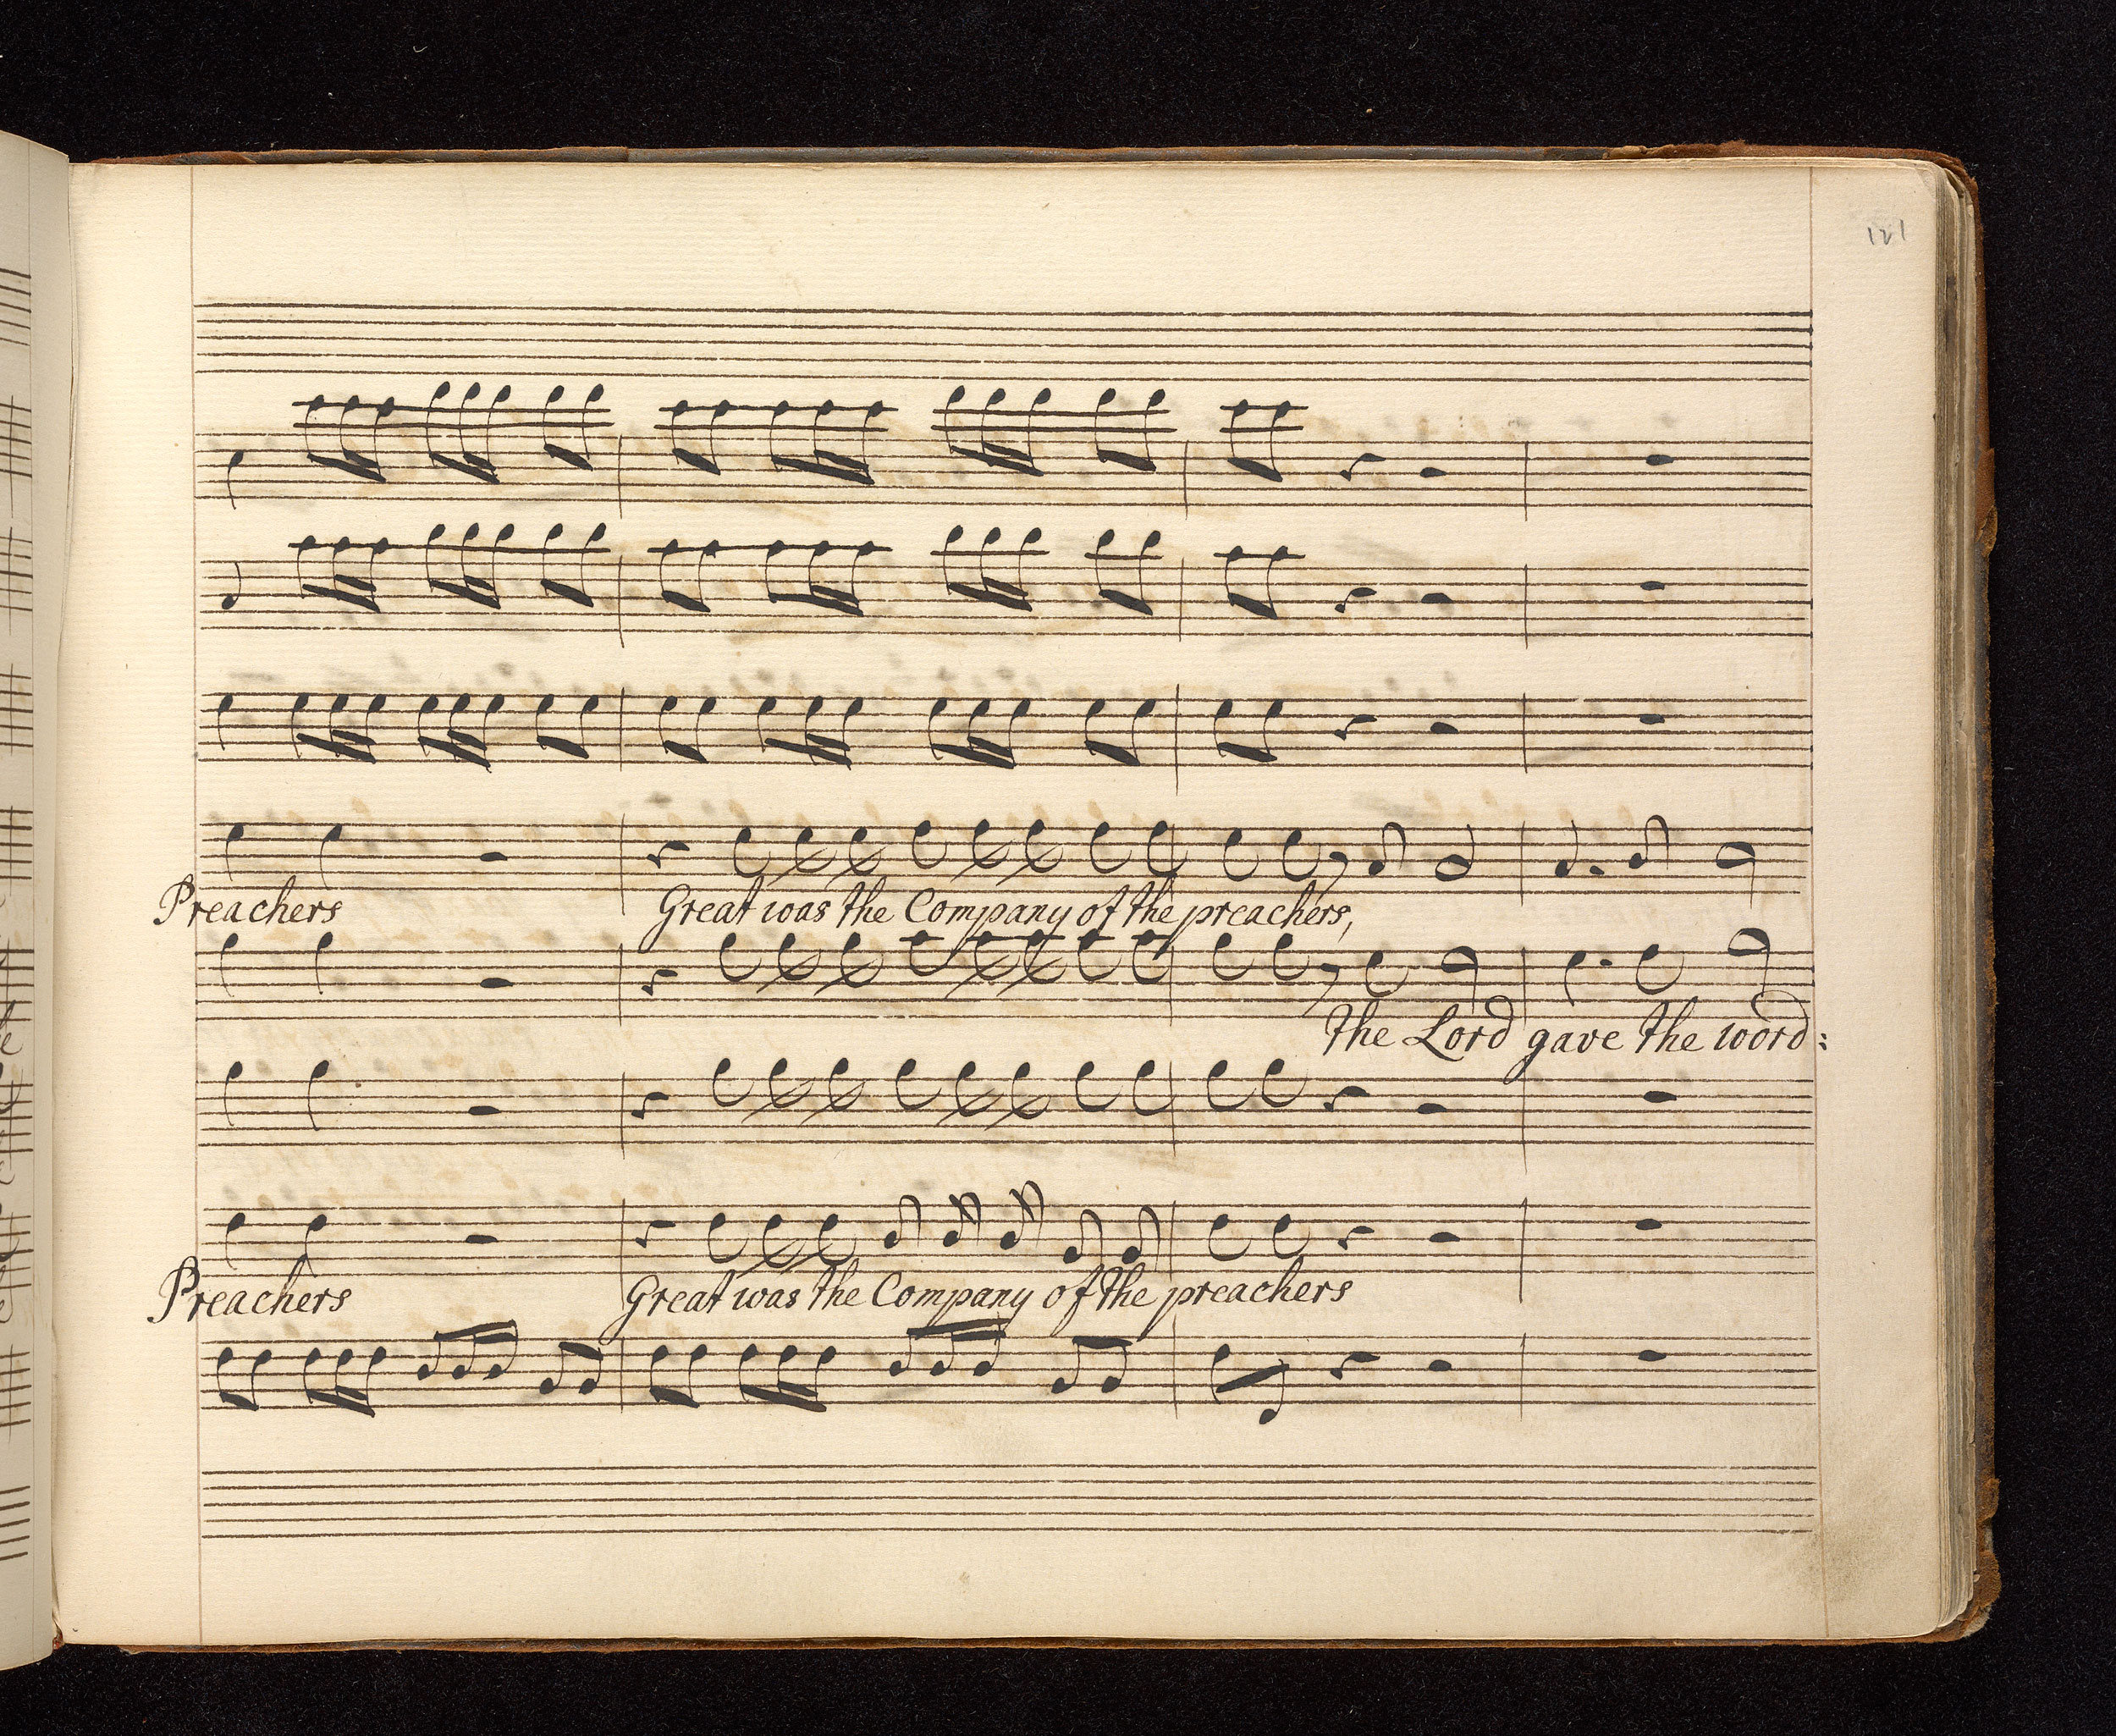 121
Preachers Great was the Company of the preachers,
the Lord gave the word:
Preachers Great was the Company of the preachers